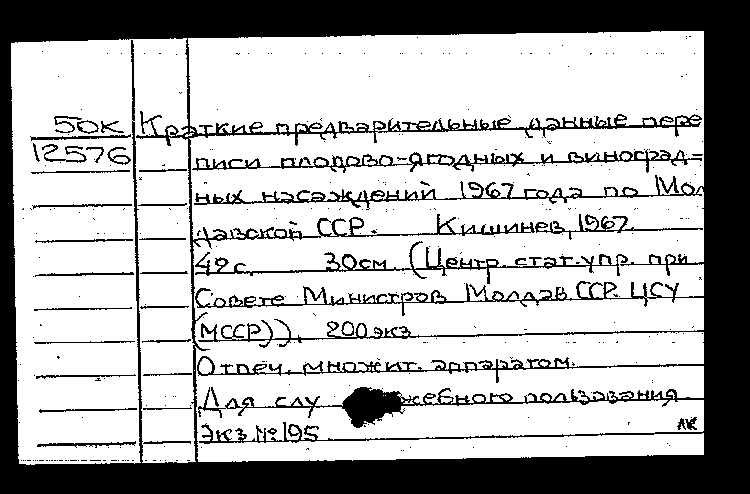 50К Краткие предварительные данные пере
12576 писи плодово-ягодных и виноград=
ных насаждений 1967 года по Мол
давской ССР. Кишинев, 1967.
49 с. 30см. (Центр. стат. упр. при
Совете Министров Молдав. ССР. ЦСУ
(МССР)). 200 экз.
Отпеч. множит. аппаратом.
Для слу жебного пользования.
Экз. № 195